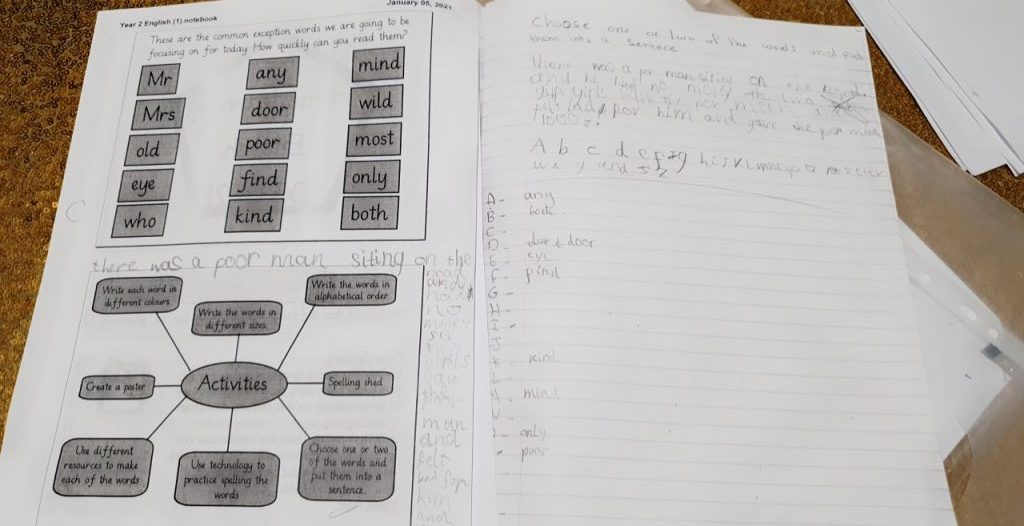 January 05, 2021
Year 2 English (1).notebook
These are the common exception words we are going to be
focusing on for today. How quickly can you read them?
Mr any mind
Mrs door wild
old poor most
eye find only
who kind both
there was a poor man siting on the
road
and
no
money
so
girls
saw
the
man
and
felt
bad for
him
and
Write each word in
different colours.
Write the words in
different sizes.
Write the words in
alphabetical order.
Create a poster
Activities
Spelling shed
Use different
resources to make
each of the words
Use technology to
practice spelling the
words
Choose one or two
of the words and
put them into a
sentence.
Choose one or two of the words and put
them into a sentece
there was a por man siting on the
and he had no mony the two
girls the por man
felt bad for him and gave the por man
A b c d e f g h i j k l m n o p q r s t u v
w x y and z
A- any
B- both
C-
D- door
E- eye
F- find
G-
H-
I-
J
K- kind
L-
M- mind
N-
only
poor